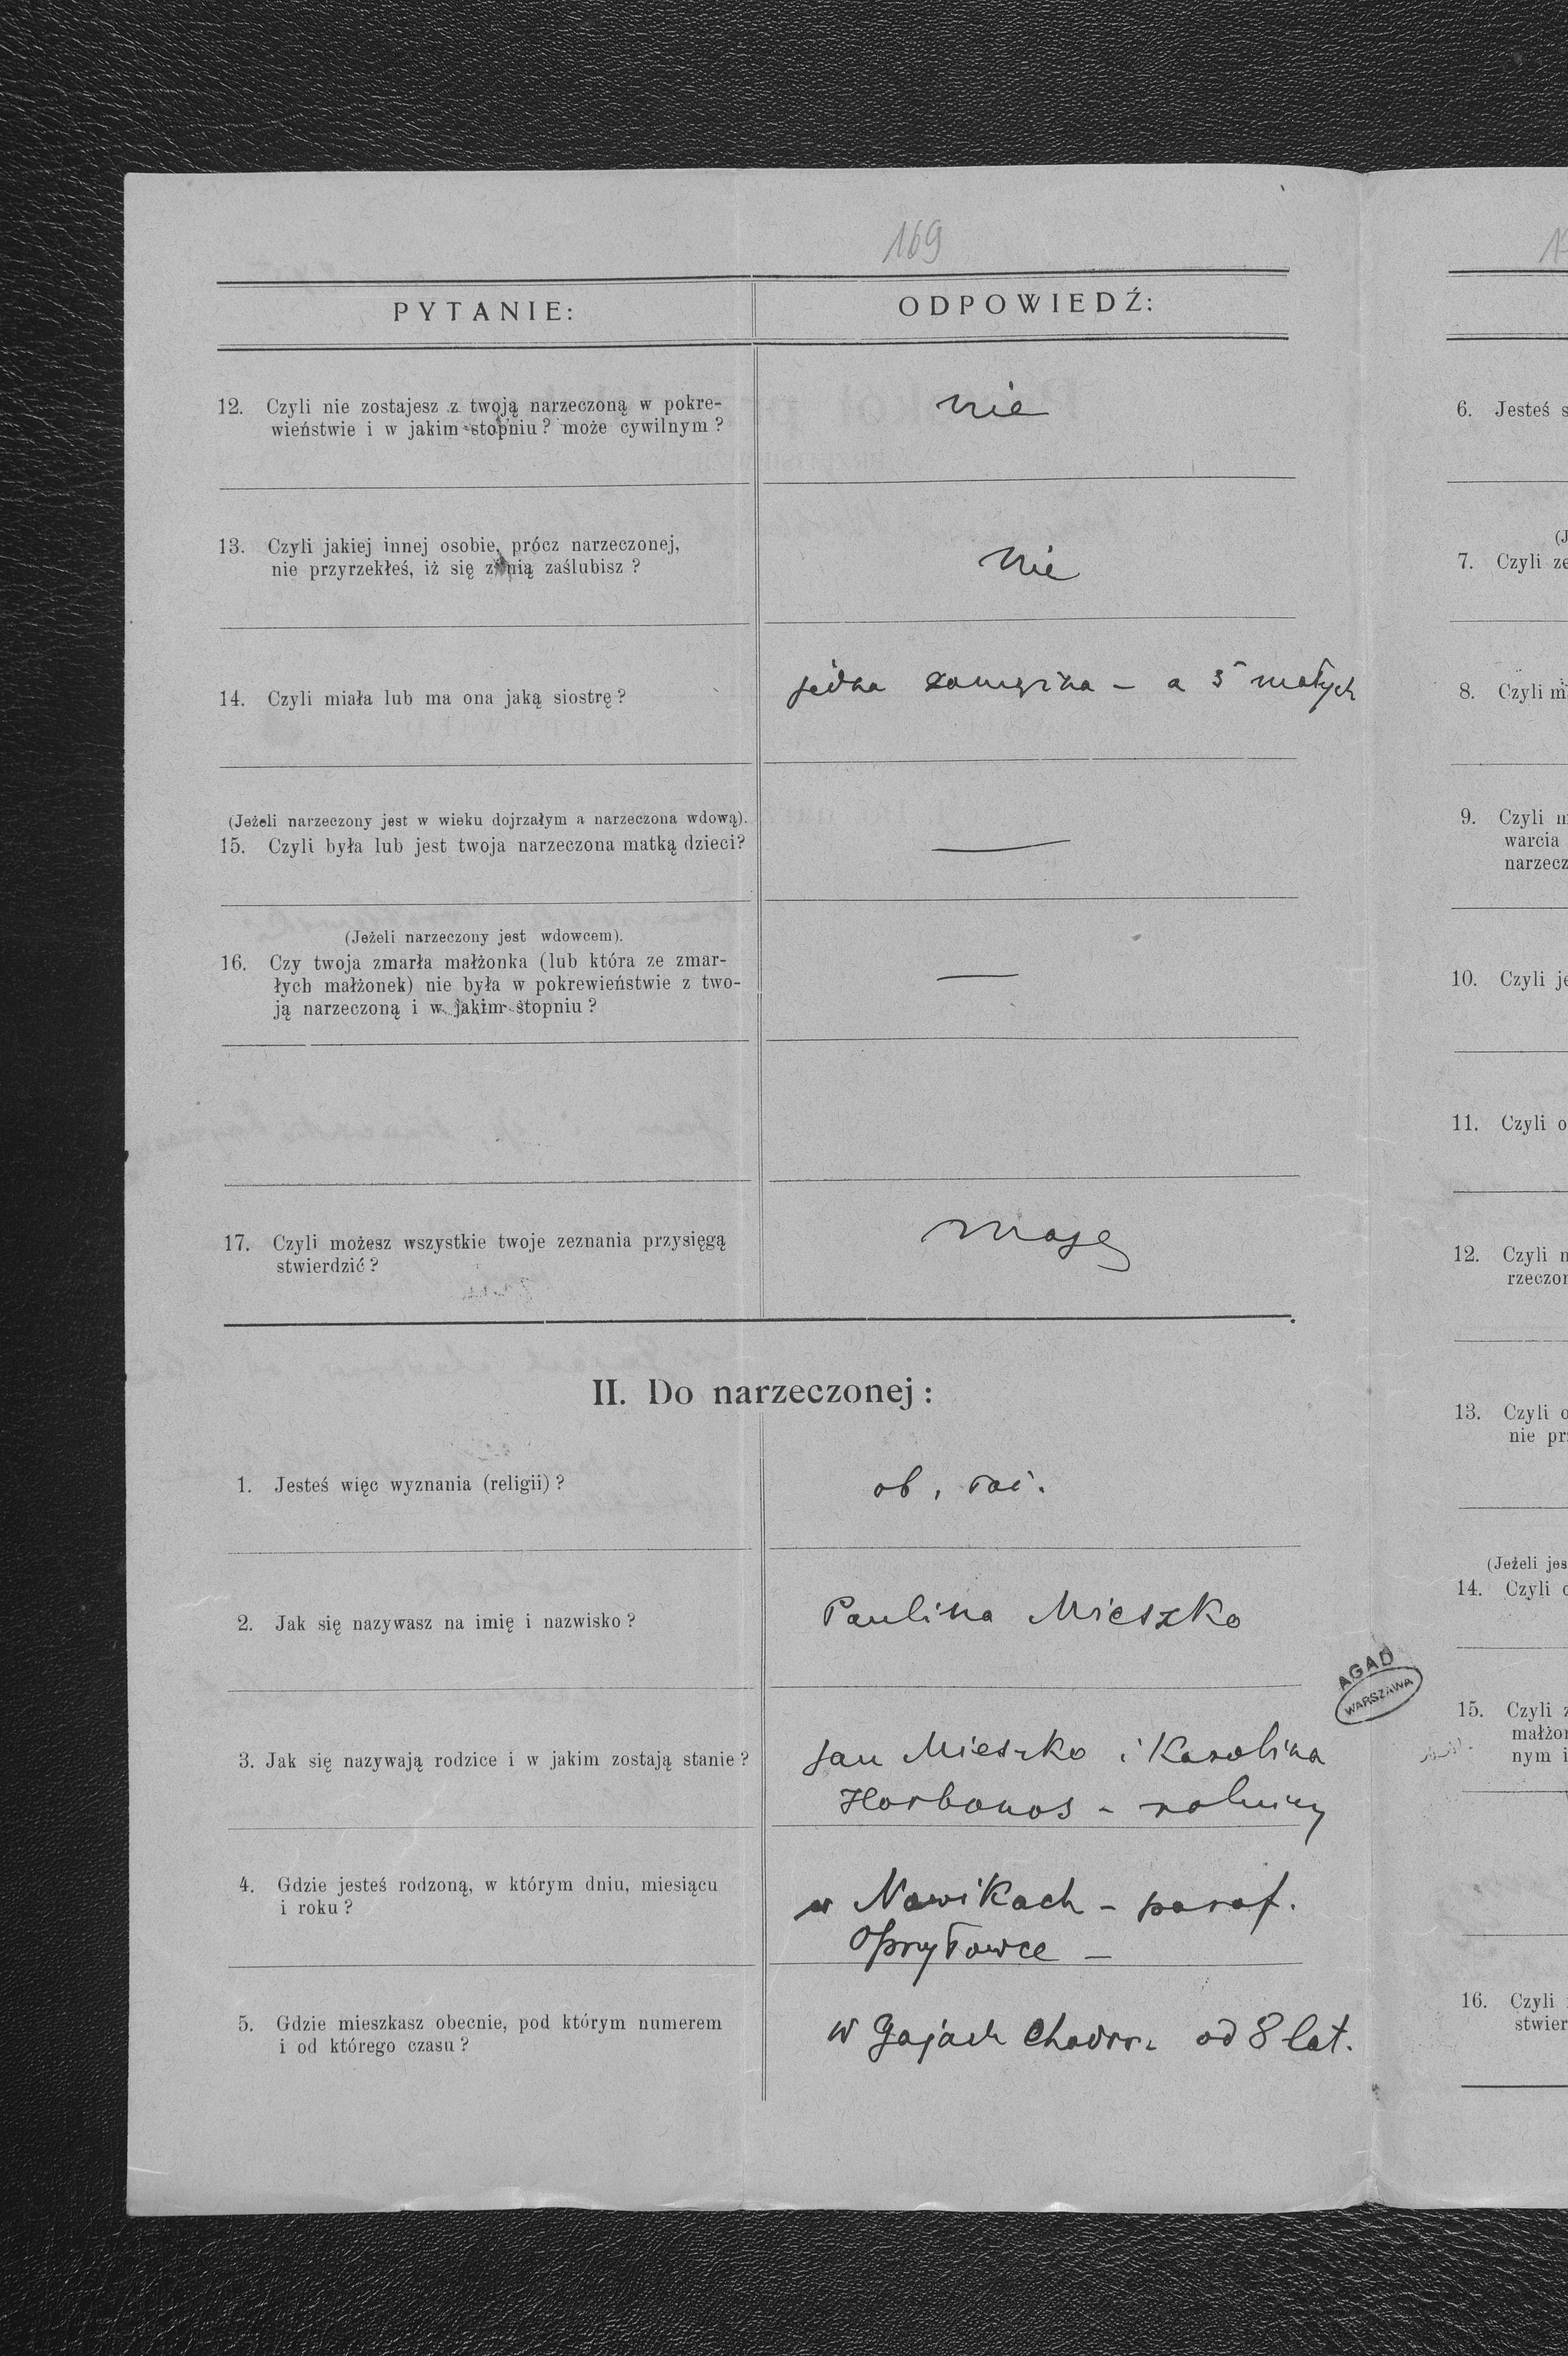 169
PYTANIE:
ODPOWIEDŹ:
12. Czyli nie zostajesz z twoją narzeczoną w pokre-
wieństwie i w jakim stopniu? może cywilnym?
nie
13. Czyli jakiej innej osobie, prócz narzeczonej,
nie przyrzekłeś, iż się z nią zaślubisz?
nie
14. Czyli miała lub ma ona jaką siostrę?
jedna zamężna – a 5 małych
(Jeżeli narzeczony jest w wieku dojrzałym a narzeczona wdową).
15. Czyli była lub jest twoja narzeczona matką dzieci?
—
(Jeżeli narzeczony jest wdowcem).
16. Czy twoja zmarła małżonka (lub która ze zmar-
łych małżonek) nie była w pokrewieństwie z two-
ją narzeczoną i w jakim stopniu?
—
17. Czyli możesz wszystkie twoje zeznania przysięgą
stwierdzić?
mogę
II. Do narzeczonej:
1. Jesteś więc wyznania (religii)?
ob, łać.
2. Jak się nazywasz na imię i nazwisko?
Paulina Mieszko
3. Jak się nazywają rodzice i w jakim zostają stanie?
Jan Mieszko i Karolina
Horbonos - rolnicy
4. Gdzie jesteś rodzoną, w którym dniu, miesiącu
i roku?
w Nowikach – paraf.
Opryłowce –
5. Gdzie mieszkasz obecnie, pod którym numerem
i od którego czasu?
w Gajach Chodor. od 8 lat.
AGAD
WARSZAWA
6. Jesteś s
(J
7. Czyli ze
8. Czyli m
9. Czyli n
warcia
narzecz
10. Czyli je
11. Czyli o
12. Czyli n
rzeczon
13. Czyli o
nie pr
(Jeżeli jes
14. Czyli c
15. Czyli z
małżon
nym i
16. Czyli
stwier